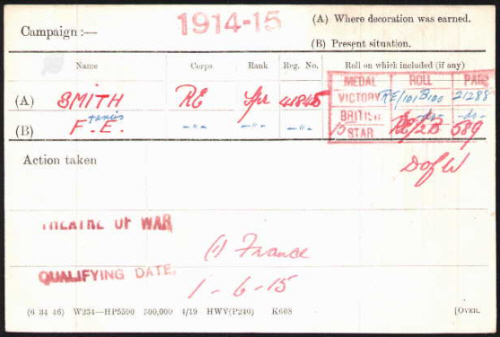 1914-15
Campaign :—
(A) Where decoration was earned.
(B) Present situation.
Name Corps Rank Reg. No. Roll on which included (if any)
MEDAL ROLL PAGE
(A) SMITH RE Spr 41845 VICTORY RE/101 B100 21288
BRITISH -do- -do-
(B) F. E. -"- -"- -"- 15 STAR RE/2B 589
Francis
Action taken D of W
THEATRE OF WAR
(1) France
QUALIFYING DATE.
1-6-15
(6 34 46) W234—HP5500 500,000 4/19 HWV(P240) K608 [OVER.